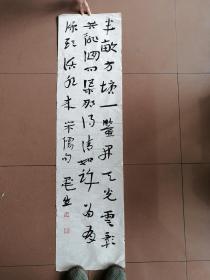 半畝方塘一鑒开天光雲影
共徘徊问渠那得清如许为有
源头活水来 宋儒句